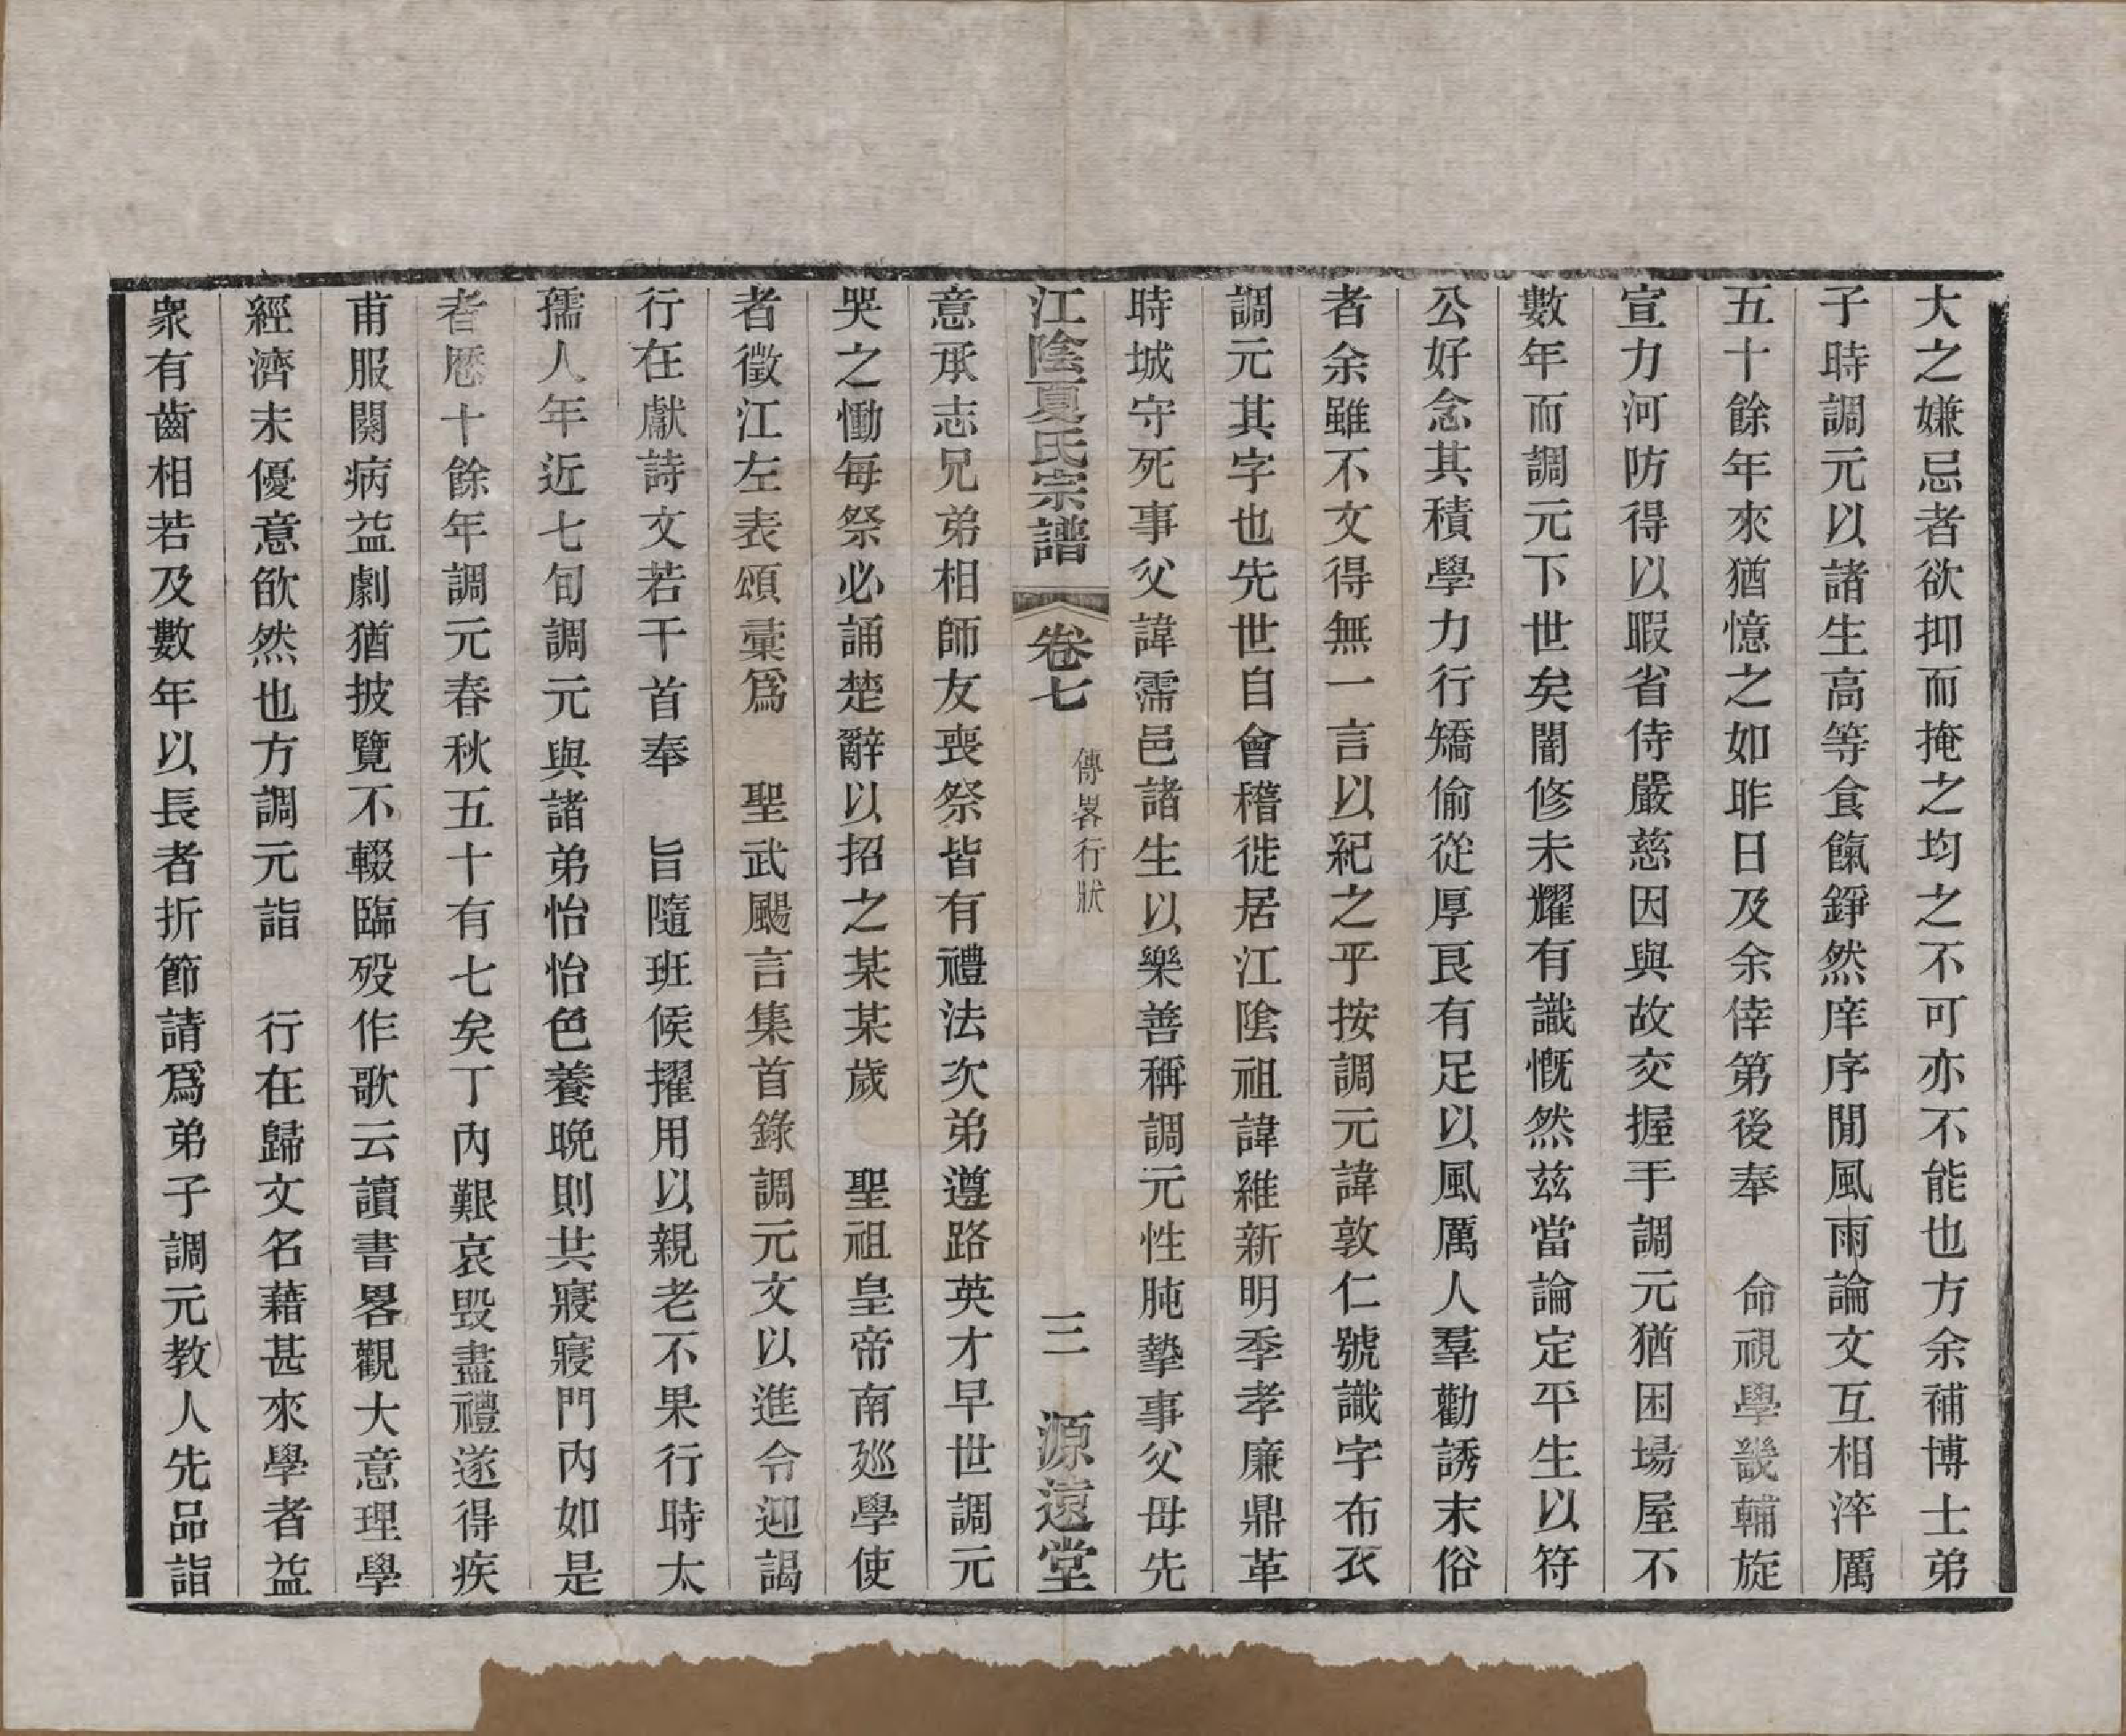 大之嫌忌者欲抑而掩之均之不可亦不能也方余補博士弟
子時調元以諸生高等食餼錚然庠序閒風雨論文互相淬厲
五十餘年來猶憶之如昨日及余倖第後奉　命視學畿輔旋
宣力河防得以暇省侍嚴慈因與故交握手調元猶困場屋不
數年而調元下世矣闇修未耀有識慨然茲當論定平生以符
公好念其積學力行矯偷從厚良有足以風厲人羣勸誘末俗
者余雖不文得無一言以紀之乎按調元諱敦仁號識字布衣
調元其字也先世自會稽徙居江陰祖諱維新明季孝廉鼎革
時城守死事父諱霈邑諸生以樂善稱調元性肫摯事父母先
江陰夏氏宗譜　卷七　傳畧行狀　三　源遠堂
意承志兄弟相師友喪祭皆有禮法次弟遵路英才早世調元
哭之慟每祭必誦楚辭以招之某某歲　聖祖皇帝南廵學使
者徵江左表頌彙爲　聖武颺言集首錄調元文以進令迎謁
行在獻詩文若干首奉　旨隨班候擢用以親老不果行時太
孺人年近七旬調元與諸弟怡怡色養晩則共寢寢門內如是
者厯十餘年調元春秋五十有七矣丁內艱哀毀盡禮遂得疾
甫服闋病益劇猶披覽不輟臨歿作歌云讀書畧觀大意理學
經濟未優意欿然也方調元詣　行在歸文名藉甚來學者益
衆有齒相若及數年以長者折節請爲弟子調元教人先品詣